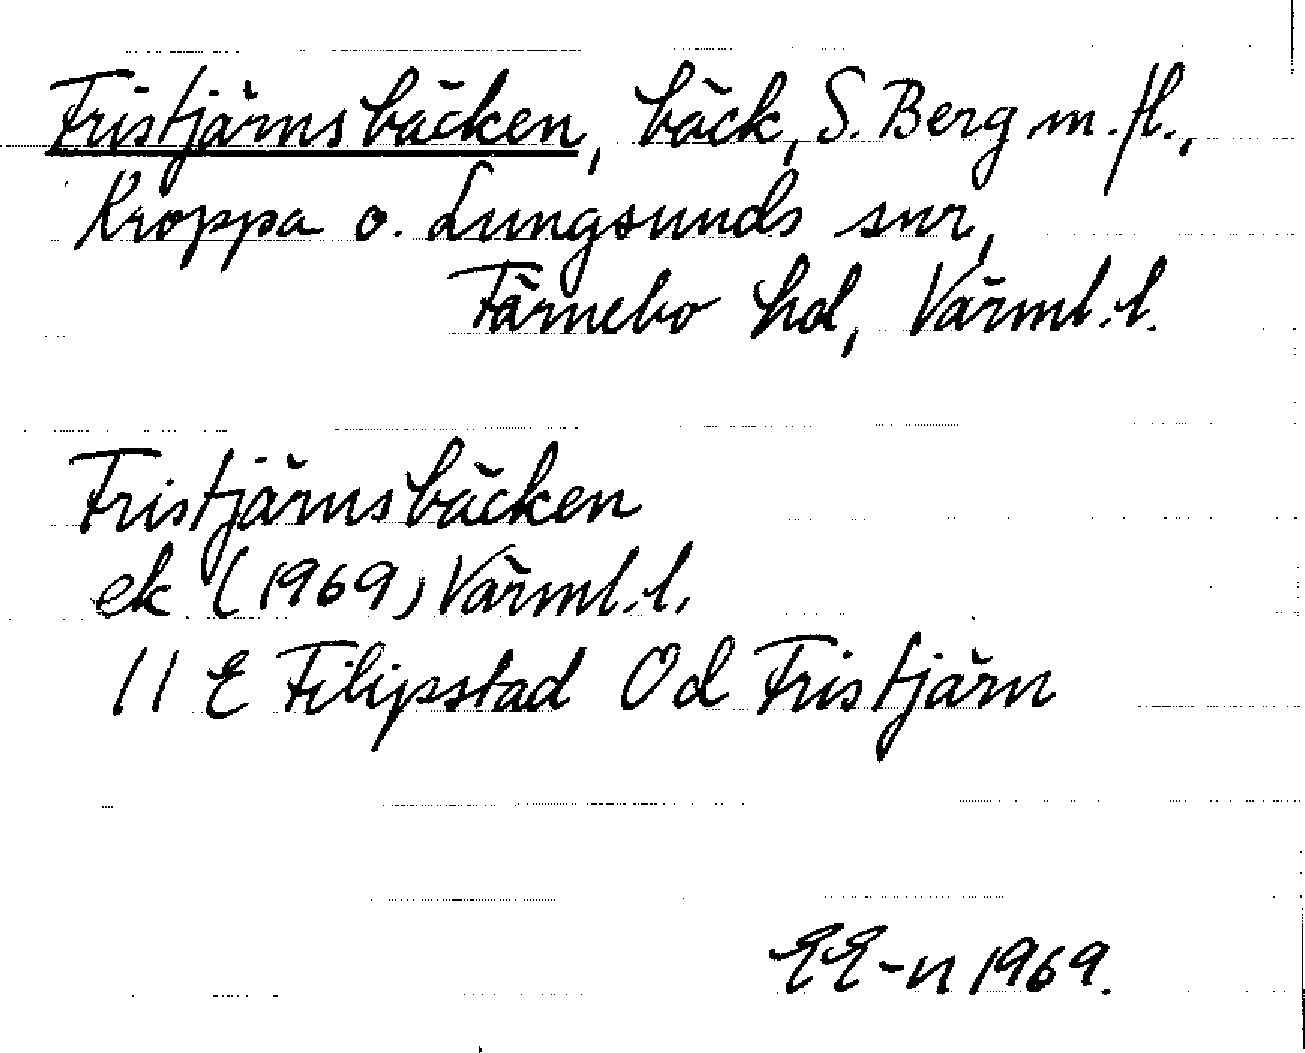 Fristjärnsbäcken, bäck, S. Berg m. fl.,
Kroppa o. Lungsunds snr,
Färnebo hd, Värml. l.
Fristjärnsbäcken
ek (1969) Värml. l.
11 E Filipstad Od Fristjärn
EE-n 1969.